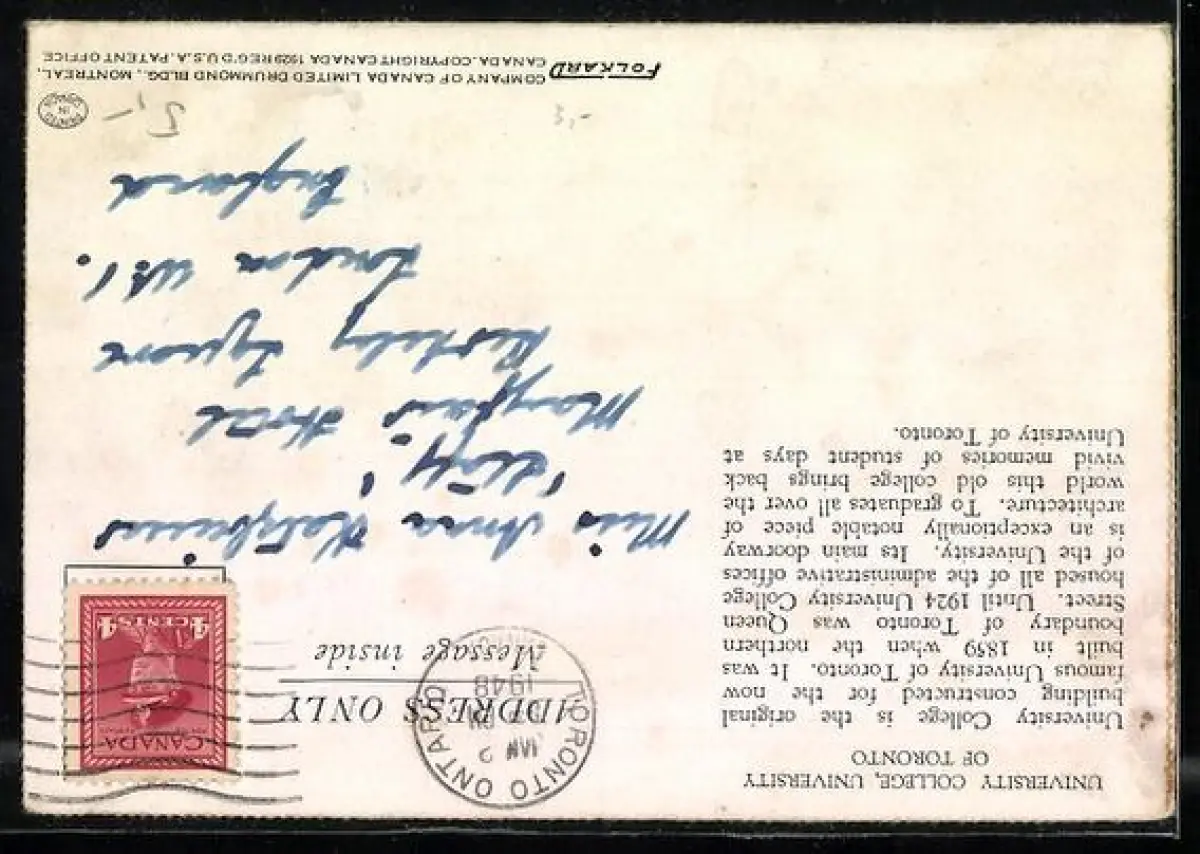 UNIVERSITY COLLEGE, UNIVERSITY
OF TORONTO
University College is the original
building constructed for the now
famous University of Toronto. It was
built in 1859 when the northern
boundary of Toronto was Queen
Street. Until 1924 University College
housed all of the administrative offices
of the University. Its main doorway
is an exceptionally notable piece of
architecture. To graduates all over the
world this old college brings back
vivid memories of student days at
University of Toronto.
TORONTO ONTARIO
JAN 2
1948
ADDRESS ONLY
Message inside
CANADA
4 CENTS 4
Miss Anna
Mayfair Hotel
Berkeley Square
London W.1.
England
FOLKARD COMPANY OF CANADA LIMITED DRUMMOND BLDG., MONTREAL,
CANADA. COPYRIGHT CANADA 1929 REG'D U.S.A. PATENT OFFICE
PRINTED
IN
CANADA
5,-
3,-